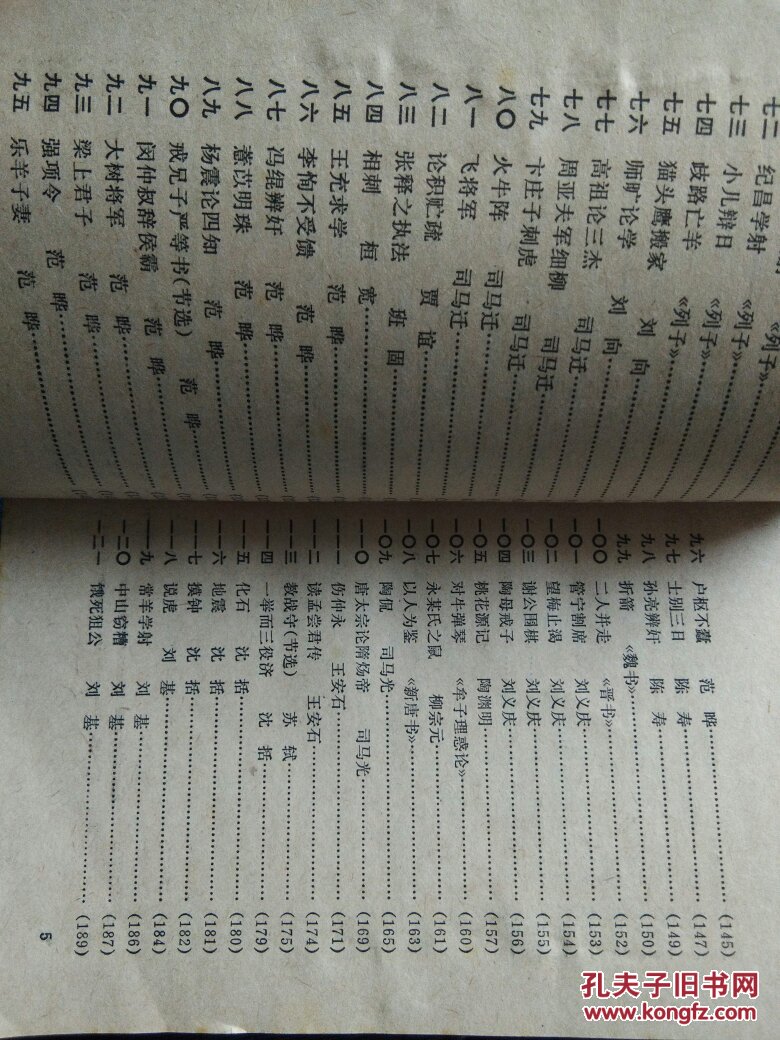 《列子》
七二 纪昌学射 《列子》
七三 小儿辩日 《列子》
七四 歧路亡羊 《列子》
七五 猫头鹰搬家 刘向
七六 师旷论学 刘向
七七 高祖论三杰 司马迁
七八 周亚夫军细柳 司马迁
七九 卞庄子刺虎 司马迁
八〇 火牛阵 司马迁
八一 飞将军 司马迁
八二 论积贮疏 贾谊
八三 张释之执法 班固
八四 相刺 桓宽
八五 王充求学 范晔
八六 李恂不受馈 范晔
八七 冯绲辨奸 范晔
八八 薏苡明珠 范晔
八九 杨震论四知 范晔
九〇 戒兄子严等书(节选) 范晔
九一 闵仲叔辞侯霸 范晔
九二 大树将军 范晔
九三 梁上君子 范晔
九四 强项令 范晔
九五 乐羊子妻 范晔
九六 户枢不蠹 范晔 (145)
九七 士别三日 陈寿 (147)
九八 孙亮辨奸 陈寿 (149)
九九 折箭 《魏书》 (150)
一〇〇 二人并走 《晋书》 (152)
一〇一 管宁割席 刘义庆 (153)
一〇二 望梅止渴 刘义庆 (154)
一〇三 谢公围棋 刘义庆 (155)
一〇四 陶母戒子 刘义庆 (156)
一〇五 桃花源记 陶渊明 (157)
一〇六 对牛弹琴 《牟子理惑论》 (160)
一〇七 永某氏之鼠 柳宗元 (161)
一〇八 以人为鉴 《新唐书》 (163)
一〇九 陶侃 司马光 (165)
一一〇 唐太宗论隋炀帝 司马光 (169)
一一一 伤仲永 王安石 (171)
一一二 读孟尝君传 王安石 (174)
一一三 教战守(节选) 苏轼 (175)
一一四 一举而三役济 沈括 (179)
一一五 化石 沈括 (180)
一一六 地震 沈括 (181)
一一七 摸钟 沈括 (182)
一一八 说虎 刘基 (184)
一一九 常羊学射 刘基 (186)
一二〇 中山窃糟 刘基 (187)
一二一 饿死狙公 刘基 (189)
5
孔夫子旧书网
www.kongfz.com